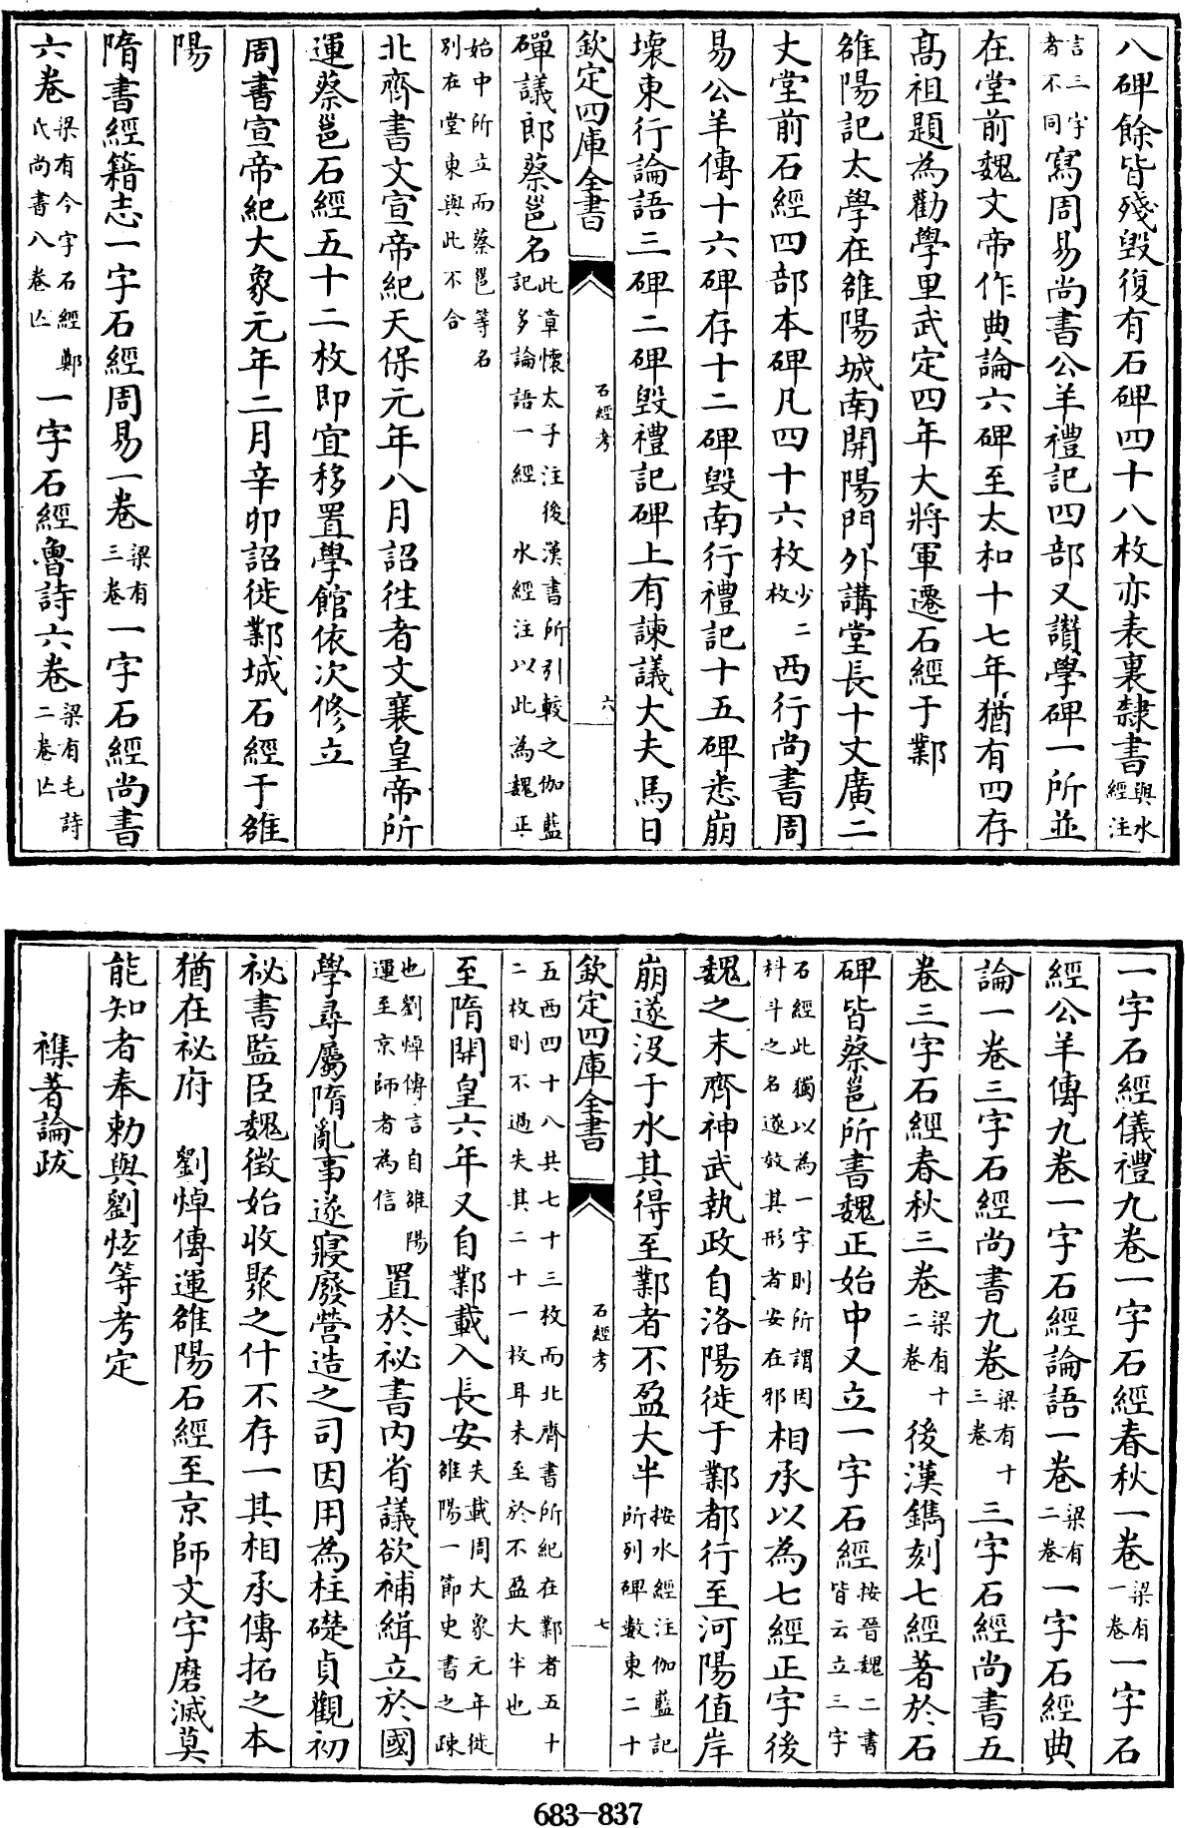 八碑餘皆殘毀復有石碑四十八枚亦表裏隸書與水經注
言三字者不同寫周易尚書公羊禮記四部又讚學碑一所並
在堂前魏文帝作典論六碑至太和十七年猶有四存
高祖題為勸學里武定四年大將軍遷石經于鄴
雒陽記太學在雒陽城南開陽門外講堂長十丈廣二
丈堂前石經四部本碑凡四十六枚少二枚西行尚書周
易公羊傳十六碑存十二碑毀南行禮記十五碑悉崩
壞東行論語三碑二碑毀禮記碑上有諫議大夫馬日
欽定四庫全書 石經考 六
磾議郎蔡邕名此章懷太子注後漢書所引較之伽藍記多論語一經水經注以此為魏正
始中所立而蔡邕等名別在堂東與此不合
北齊書文宣帝紀天保元年八月詔往者文襄皇帝所
運蔡邕石經五十二枚即宜移置學館依次修立
周書宣帝紀大象元年二月辛卯詔徙鄴城石經于雒
陽
隋書經籍志一字石經周易一卷梁有三卷一字石經尚書
六卷梁有今字石經鄭氏尚書八卷亡一字石經魯詩六卷梁有毛詩二卷亡
一字石經儀禮九卷一字石經春秋一卷梁有一卷一字石
經公羊傳九卷一字石經論語一卷梁有二卷一字石經典
論一卷三字石經尚書九卷梁有十三卷三字石經尚書五
卷三字石經春秋三卷梁有十二卷後漢鐫刻七經著於石
碑皆蔡邕所書魏正始中又立一字石經按晉魏二書皆云立三字
石經此獨以為一字則所謂因科斗之名遂效其形者安在邪相承以為七經正字後
魏之末齊神武執政自洛陽徙于鄴都行至河陽值岸
崩遂沒于水其得至鄴者不盈大半按水經注伽藍記所列碑數東二十
欽定四庫全書 石經考 七
五西四十八共七十三枚而北齊書所紀在鄴者五十二枚則不過失其二十一枚耳未至於不盈大半也
至隋開皇六年又自鄴載入長安失載周大象元年徙雒陽一節史書之疎
也劉焯傳言自雒陽運至京師者為信置於祕書內省議欲補緝立於國
學尋屬隋亂事遂寢廢營造之司因用為柱礎貞觀初
祕書監臣魏徵始收聚之什不存一其相承傳拓之本
猶在祕府 劉焯傳運雒陽石經至京師文字磨滅莫
能知者奉勅與劉炫等考定
襍著論跋
683-837